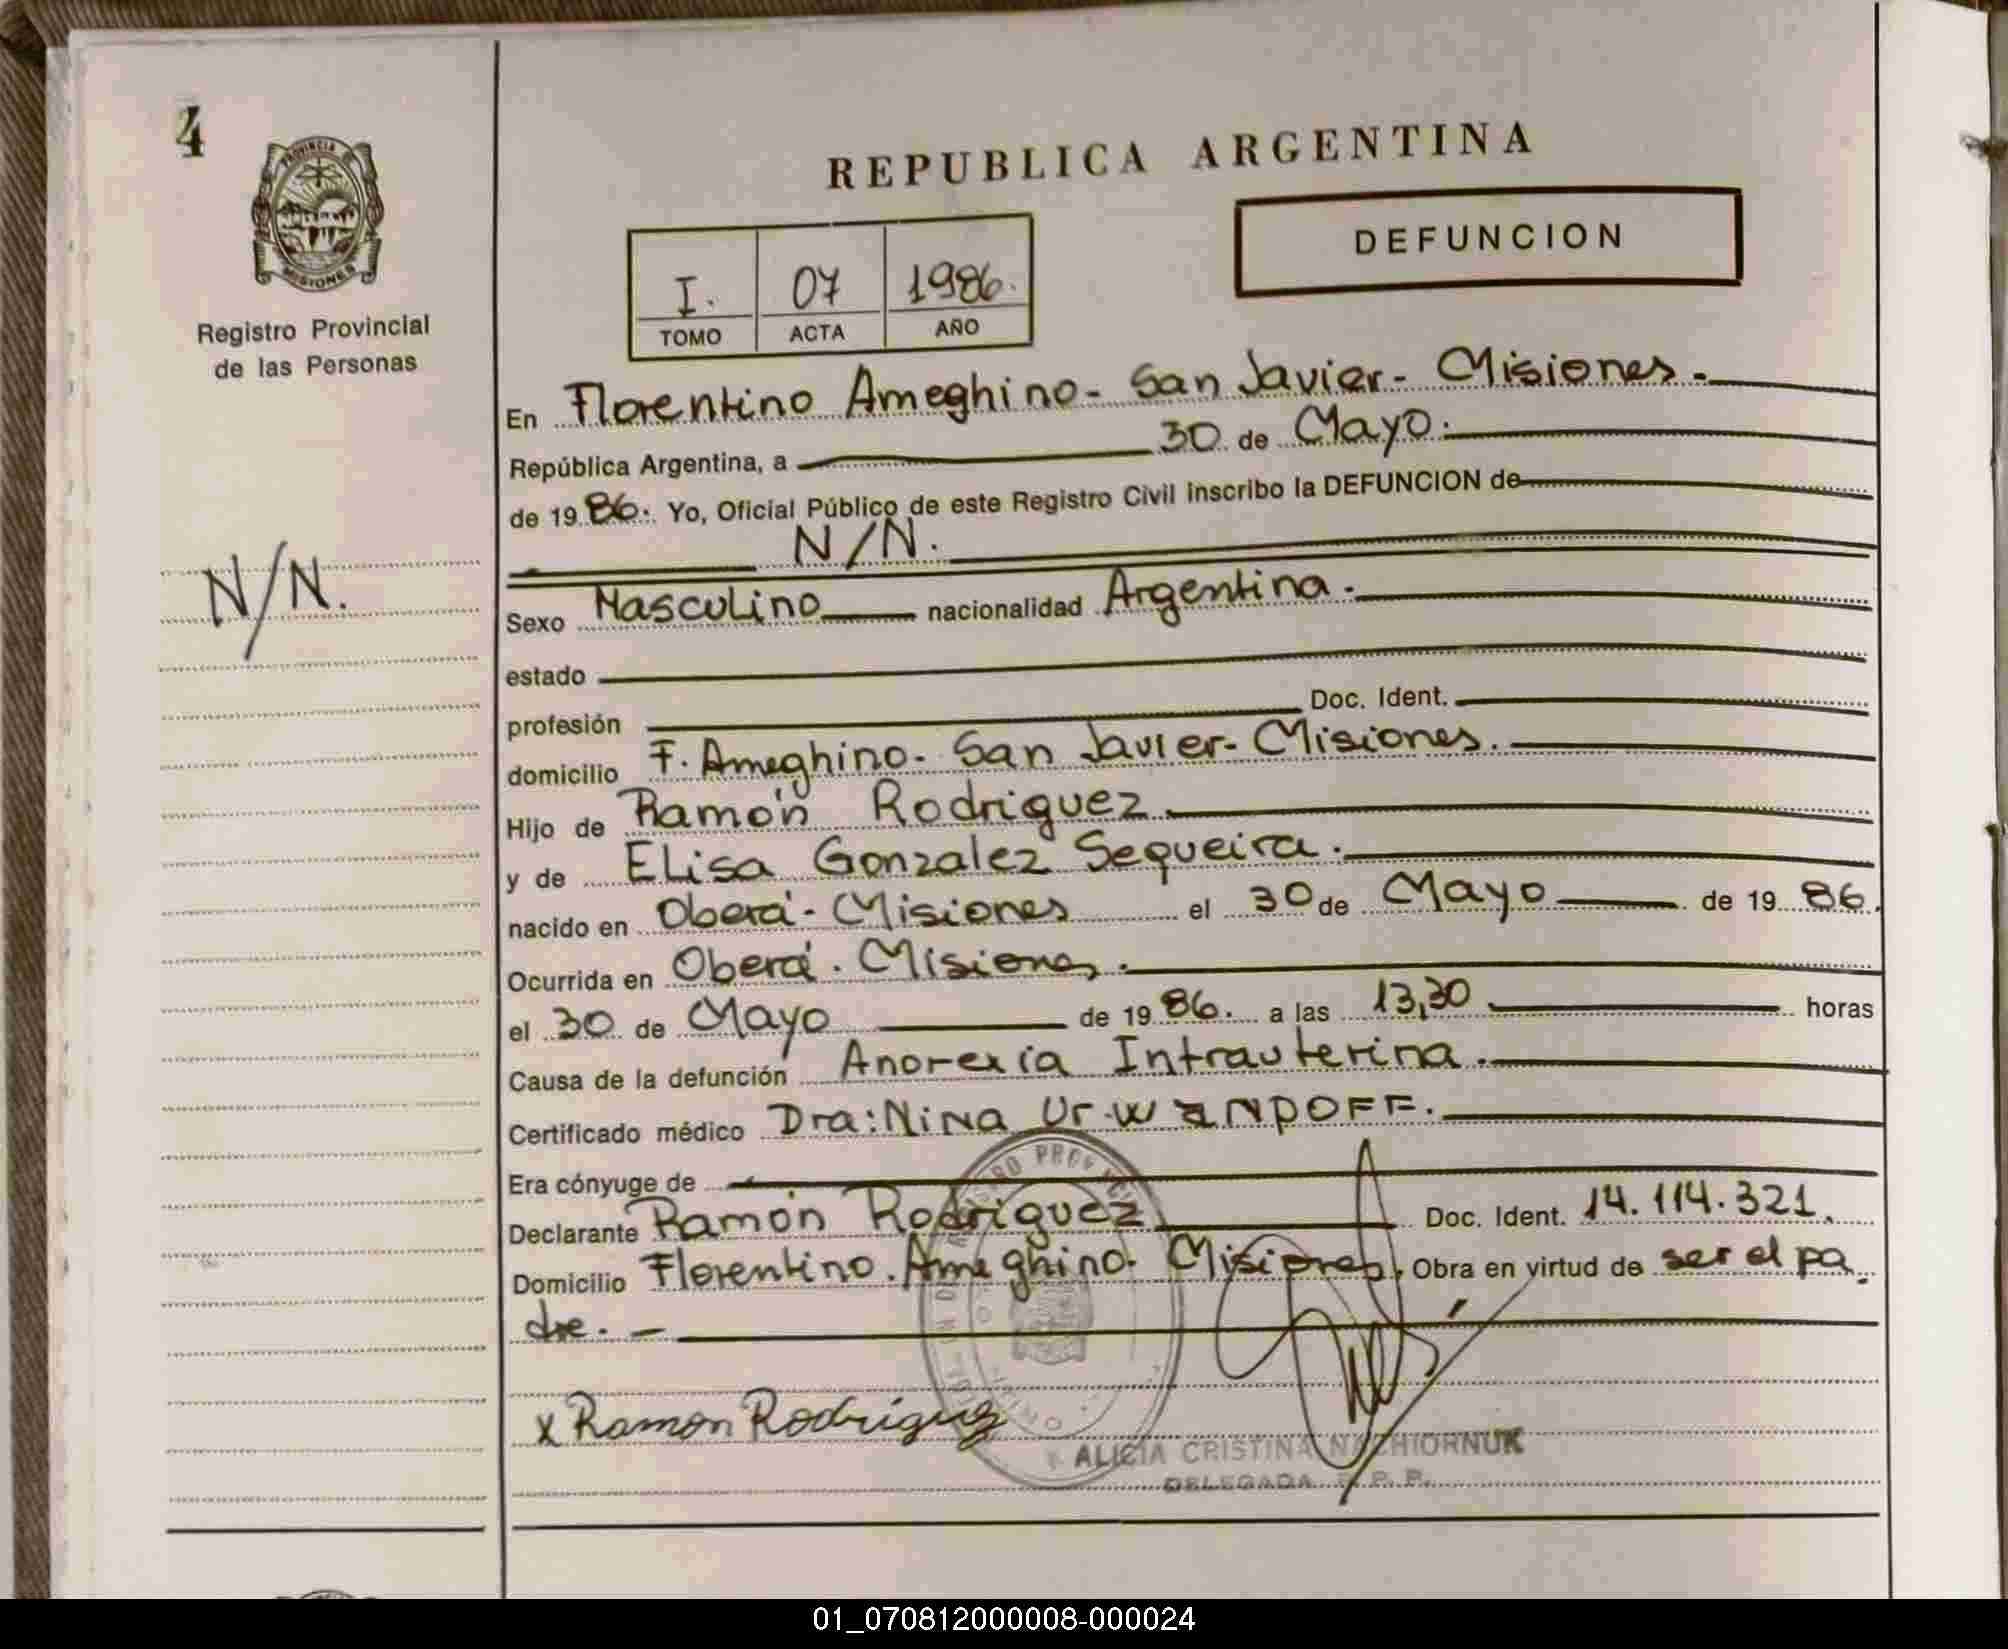 4
PROVINCIA DE
MISIONES
Registro Provincial
de las Personas
N/N.
REPUBLICA ARGENTINA
DEFUNCION
I. 07 1986.
TOMO ACTA AÑO
En Florentino Ameghino - San Javier - Misiones.
República Argentina, a 30 de Mayo.
de 1986. Yo, Oficial Público de este Registro Civil inscribo la DEFUNCION de
N/N.
Sexo Masculino nacionalidad Argentina.
estado
profesión Doc. Ident.
domicilio F. Ameghino - San Javier - Misiones.
Hijo de Ramón Rodriguez
y de Elisa Gonzalez Sequeira.
nacido en Oberá - Misiones el 30 de Mayo de 1986.
Ocurrida en Oberá. Misiones.
el 30 de Mayo de 1986. a las 13,30 horas
Causa de la defunción Anorexia Intrauterina.
Certificado médico Dra: Nina
Era cónyuge de
Declarante Ramón Rodriguez Doc. Ident. 14.114.321.
Domicilio Florentino. Ameghino. Misiones, Obra en virtud de ser el pa
dre. -
x Ramon Rodriguez
ALICIA CRISTINA NACHIORNUK
DELEGADA R. P. P.
01_070812000008-000024